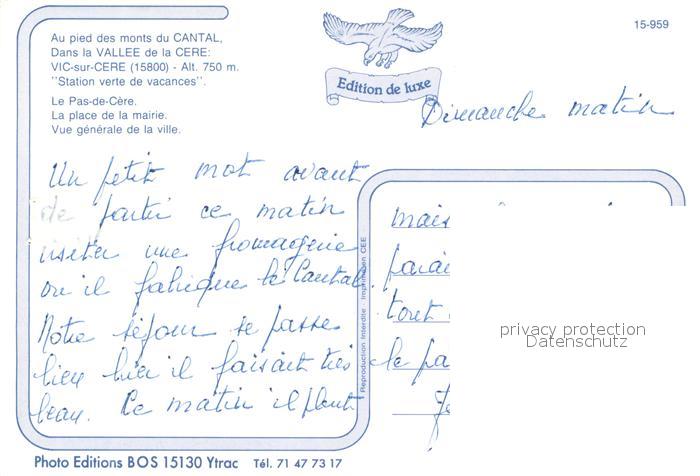 Au pied des monts du CANTAL,
Dans la VALLEE de la CERE:
VIC-sur-CERE (15800) - Alt. 750 m.
"Station verte de vacances".
Le Pas-de-Cère.
La place de la mairie.
Vue générale de la ville.
Edition de luxe
15-959
Dimanche matin
Un petit mot avant
de partir ce matin
visiter une fromagerie
ou il fabrique le Cantal.
Notre séjour se passe
bien hier il faisait très
beau. Ce matin il pleut
mais
tout
le
Reproduction Interdite Impression CEE
privacy protection
Datenschutz
Photo Editions BOS 15130 Ytrac Tél. 71 47 73 17